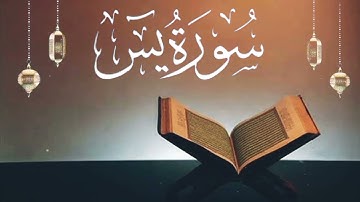 سُورَةُ يٓسٓ